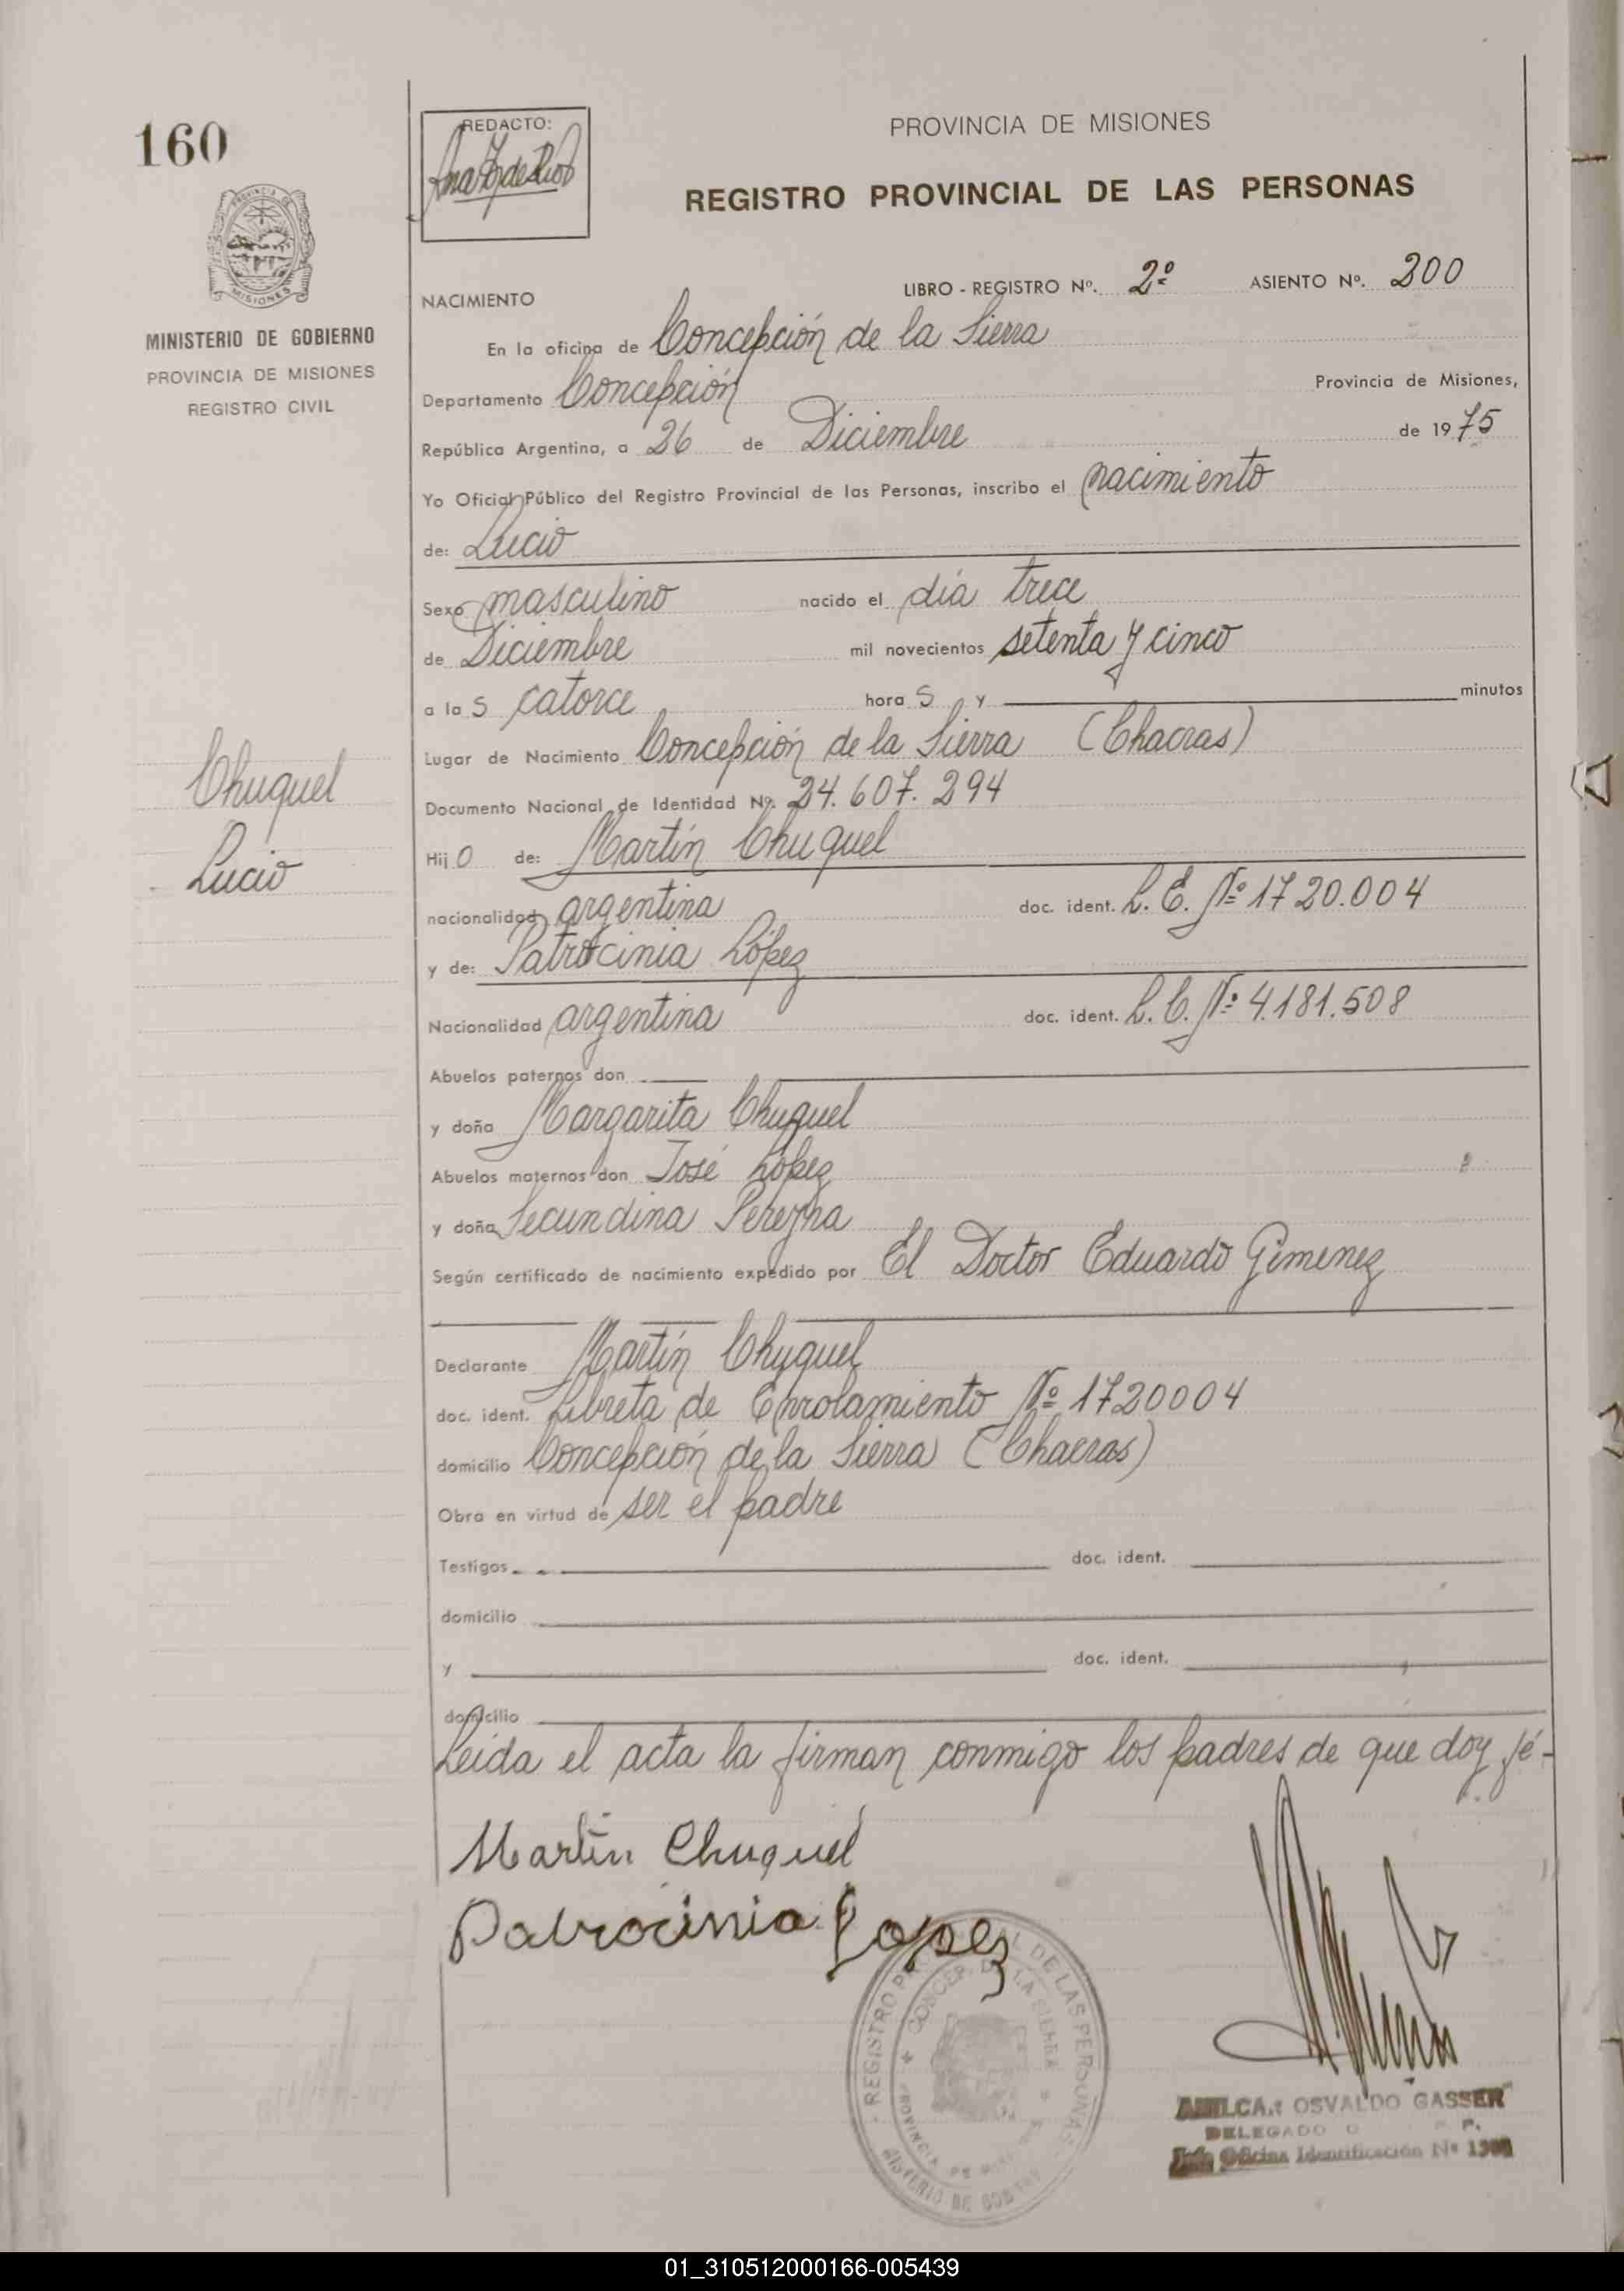 160
REDACTO:
PROVINCIA DE MISIONES
REGISTRO PROVINCIAL DE LAS PERSONAS
MISIONES
MINISTERIO DE GOBIERNO
PROVINCIA DE MISIONES
REGISTRO CIVIL
LIBRO - REGISTRO Nº. 2º ASIENTO Nº. 200
NACIMIENTO
En la oficina de Concepción de la Sierra
Departamento Concepción Provincia de Misiones,
República Argentina, a 26 de Diciembre de 1975
Yo Oficial Público del Registro Provincial de las Personas, inscribo el nacimiento
de: Lucio
Sexo masculino nacido el día trece
de Diciembre mil novecientos setenta y cinco
a las catorce horas y minutos
Lugar de Nacimiento Concepción de la Sierra (Chacras)
Documento Nacional de Identidad Nº. 24.607.294
Chuquel
Lucio
Hijo de: Martín Chuquel
nacionalidad argentina doc. ident. L. E. Nº 1720.004
y de: Patrocinia López
Nacionalidad argentina doc. ident. L. C. Nº 4.181.508
Abuelos paternos don
y doña Margarita Chuquel
Abuelos maternos don José López
y doña Secundina Pereyra
Según certificado de nacimiento expedido por El Doctor Eduardo Gimenez
Declarante Martín Chuquel
doc. ident. Libreta de Enrolamiento Nº 1720004
domicilio Concepción de la Sierra (Chacras)
Obra en virtud de ser el padre
Testigos doc. ident.
domicilio
y doc. ident.
domicilio
Leida el acta la firman conmigo los padres de que doy fé-
Martin Chuquel
Patrocinia Lopez
REGISTRO PROVINCIAL DE LAS PERSONAS
CONCEP. DE LA SIERRA
PROVINCIA DE MISIONES
MINISTERIO DE GOBIERNO
AMILCAR OSVALDO GASSER
DELEGADO
Jefe Oficina Identificación Nº
01_310512000166-005439